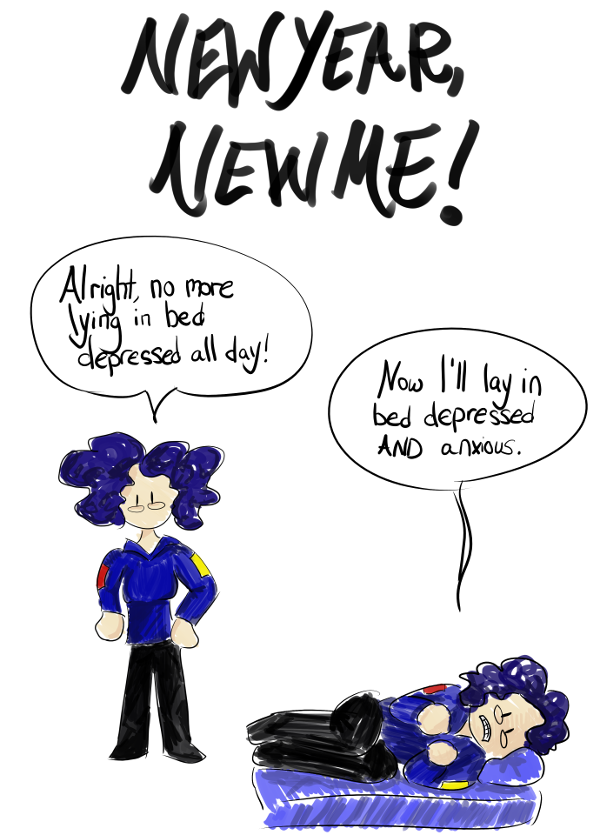 NEW YEAR,
NEW ME!
Alright, no more
lying in bed
depressed all day!
Now I'll lay in
bed depressed
AND anxious.